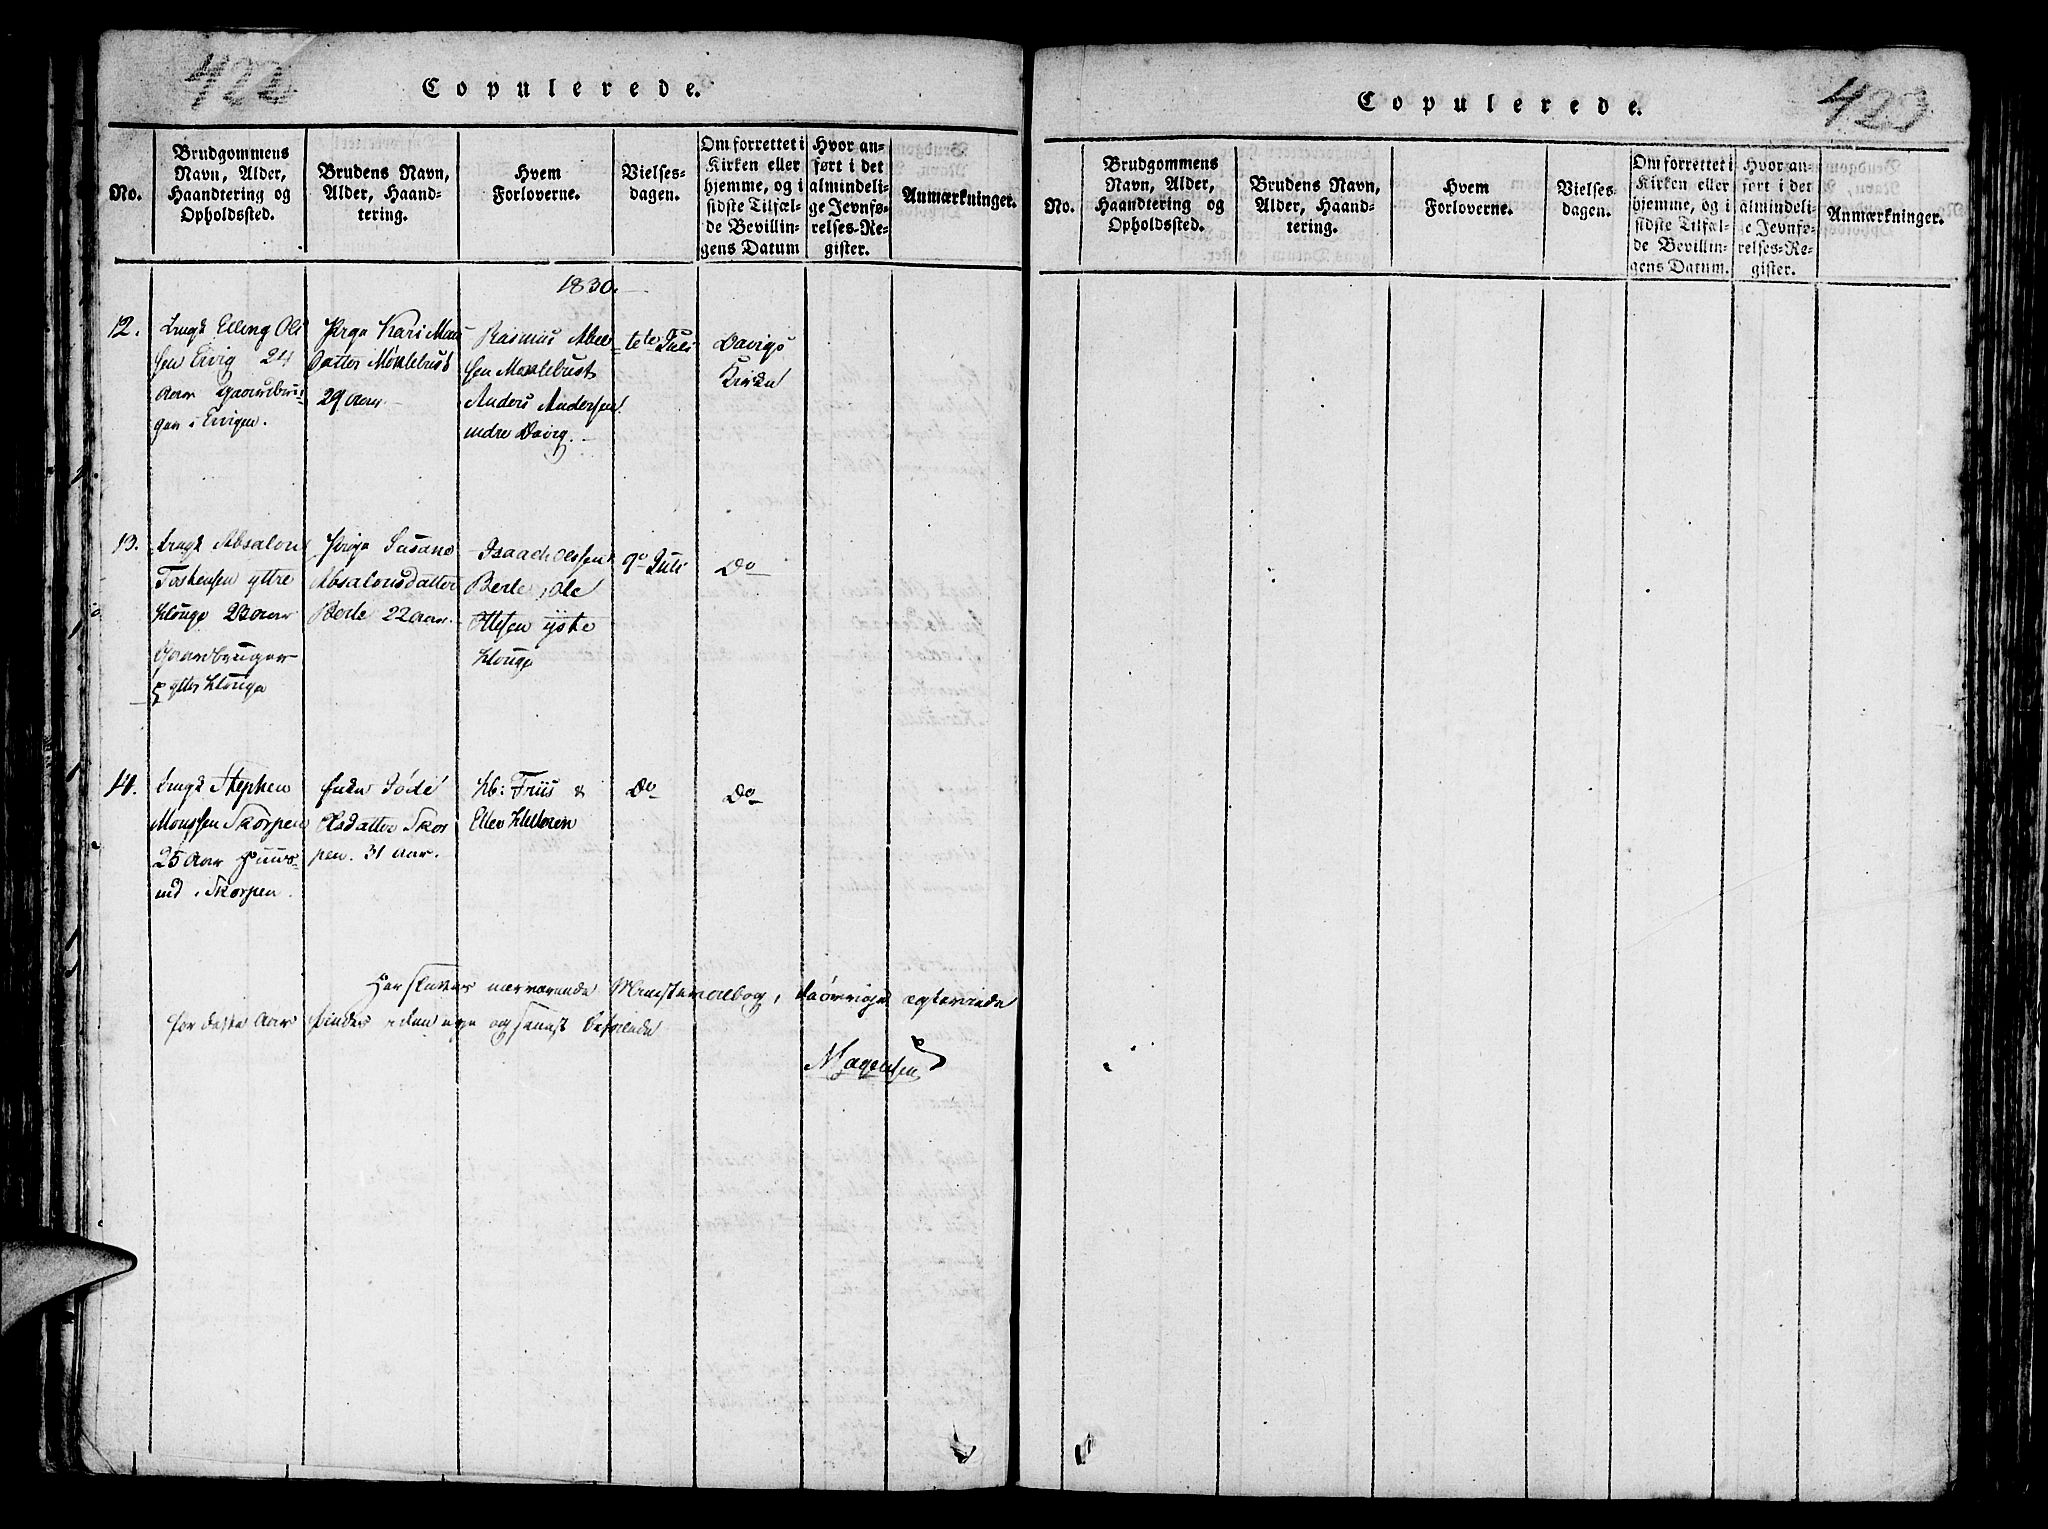 422
Copulerede.
No.
Brudgommens
Navn, Alder,
Haandtering og
Opholdssted.
Brudens Navn,
Alder, Haand-
tering.
Hvem
Forloverne.
Vielses-
dagen.
Om forrettet i
Kirken eller
hjemme, og i
sidste Tilfæl-
de Bevillin-
gens Datum
Hvor an-
ført i det
almindeli-
ge Jevnfø-
relses-Re-
gister.
Anmærkninger.
1830.
12.
Ungk Elling Ol
sen Eivig 24
Aar Gaardbru-
ger i Eivigen.
Pige Kari
Datter Moklebust
29 Aar
Rasmus Abel
sen Moklebust
Anders Andersen
indre Davig.
1ete Juli
Davigs
Kirke
13.
Ungk Absalon
Torstensen yttre
Hlouge 23 Aar
Gaardbruger
i ytter Hlouge
Pige Susane
Absalonsdatter
Berle 22 Aar.
Isaach Olssen
Berle, Ole
Ottesen ytre
Hlouge
9de Juli
Do
14.
Ungk Stephen
Monssen Skorpen
25 Aar Huus-
md i Skorpen.
Enke
Olsdatter Skor
pen. 31 Aar.
Kb: Friis &
Eller
Do
Do
Her sluttes nærværende Ministerialbog, de øvrige ægteviede
for dette Aar findes i den nye og senest
Magensen
Copulerede.
423
No.
Brudgommens
Navn, Alder,
Haandtering og
Opholdssted.
Brudens Navn,
Alder, Haand-
tering.
Hvem
Forloverne.
Vielses-
dagen.
Om forrettet i
Kirken eller
hjemme, og i
sidste Tilfæl-
de Bevillin-
gens Datum.
Hvor an-
ført i det
almindeli-
ge Jevnfø-
relses-Re-
gister.
Anmærkninger.